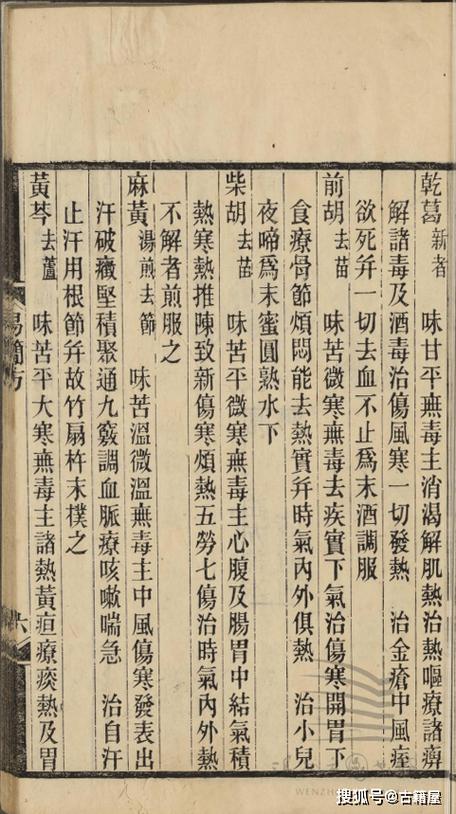 乾葛新者 味甘平無毒主消渴解肌熱治熱嘔療諸痹
解諸毒及酒毒治傷風寒一切發熱 治金瘡中風痓
欲死并一切去血不止爲末酒調服
前胡去苗 味苦微寒無毒去痰實下氣治傷寒開胃下
食療骨節煩悶能去熱實并時氣內外俱熱 治小兒
夜啼爲末蜜圓熟水下
柴胡去苗 味苦平微寒無毒主心腹及腸胃中結氣積
熱寒熱推陳致新傷寒煩熱五勞七傷治時氣內外熱
不解者煎服之
麻黃湯煎去節 味苦溫微溫無毒主中風傷寒發表出
汗破癥堅積聚通九竅調血脈療咳嗽喘急 治自汗
止汗用根節并故竹扇杵末撲之
黃芩去蘆 味苦平大寒無毒主諸熱黃疸療痰熱及胃
易簡方
六
WENZHO
搜狐号@古籍屋